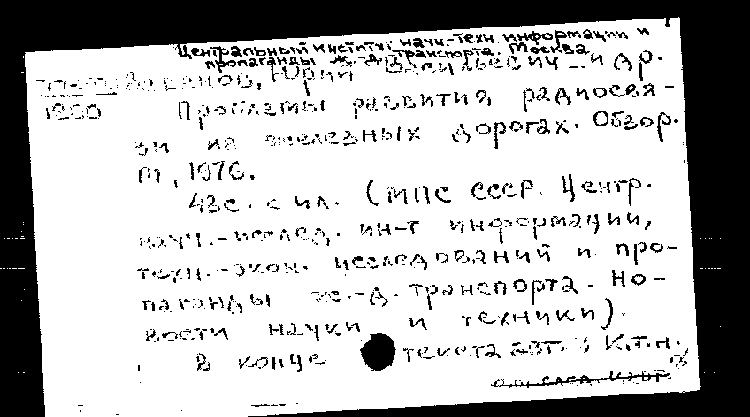 Центральный институт научн.-техн. информации и
пропаганды ж.-д. транспорта. Москва
Ваванов, Юрий Васильевич и др.
Проблемы развития радиосвя-
зи на железных дорогах. Обзор.
М., 1976.
43с. с ил. (МПС СССР. Центр.
науч.-исслед. ин-т информации,
техн.-экон. исследований и про-
паганды ж.-д. транспорта. Но-
вости науки и техники).
В конце текста авт.: К.т.н.